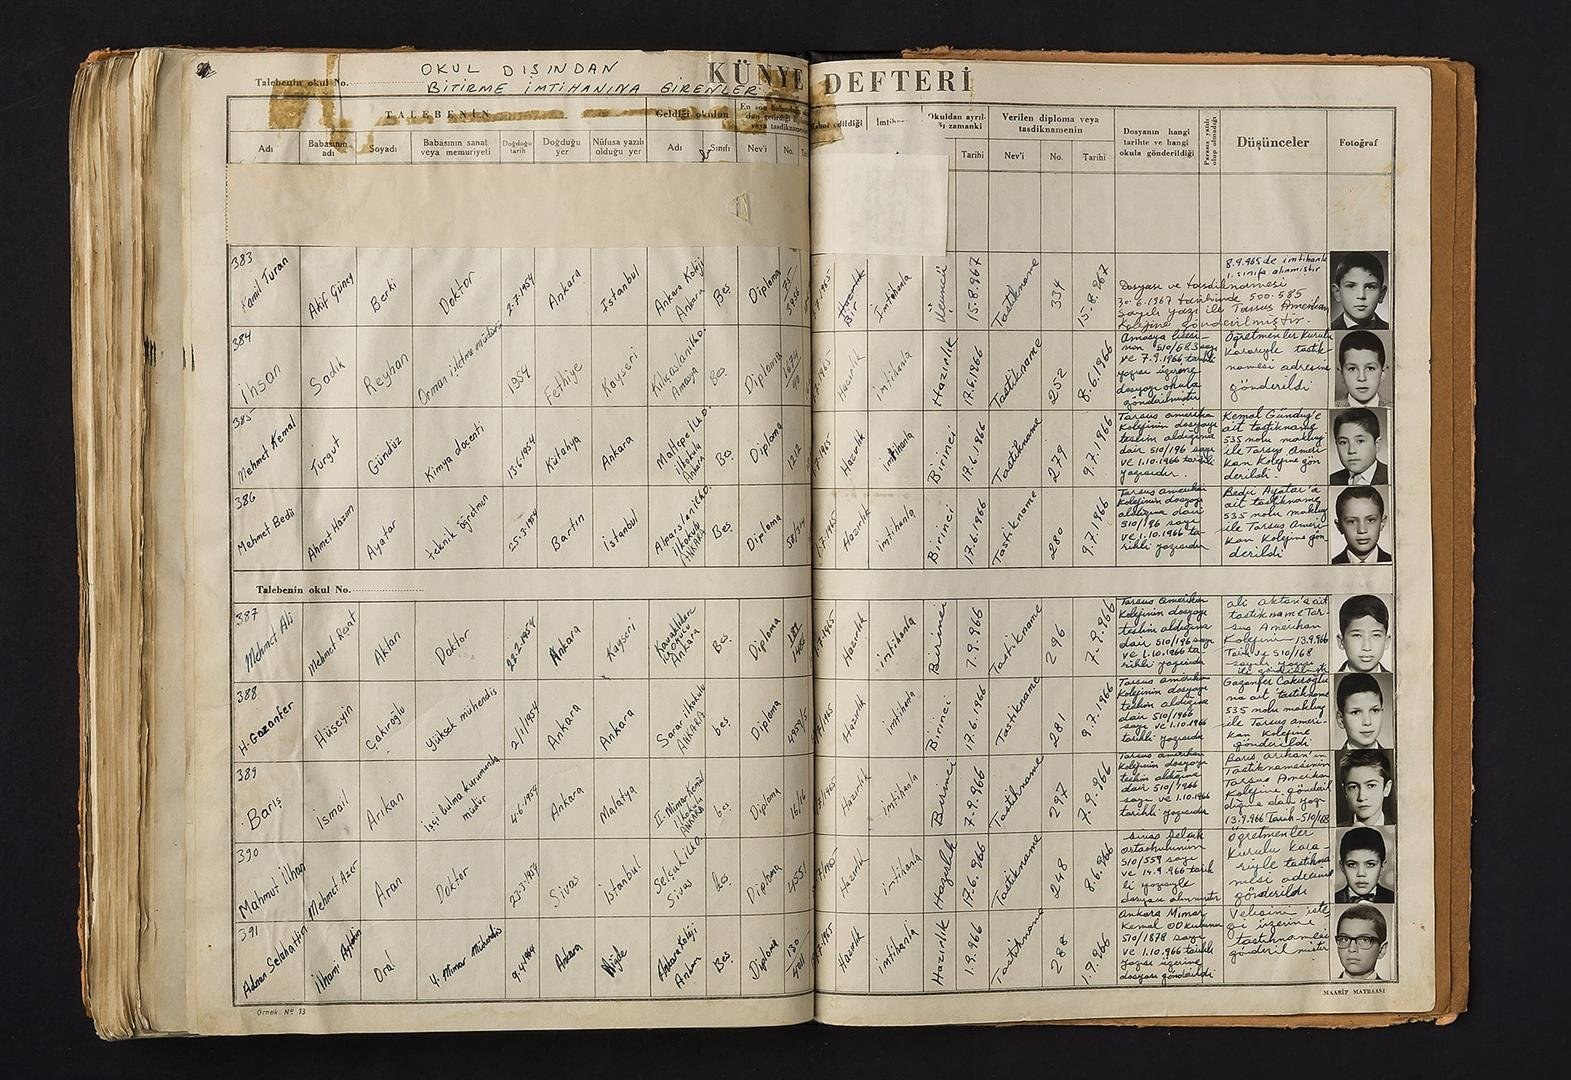 OKUL DIŞINDAN
Talebenin okul No.
BİTİRME İMTİHANINA GİRENLER
KÜNYE DEFTERİ
TALEBENİN
Geldiği okulun
Okuldan ayrıl-
Verilen diploma veya
tasdiknamenin
Adı
Babasının
adı
Soyadı
Babasının sanat
veya memuriyeti
Doğduğu
tarih
Doğduğu
yer
Nüfusa yazılı
olduğu yer
Adı
Sınıfı
Nev'i
No.
Tarihi
Nev'i
No.
Tarihi
Dosyanın hangi
tarihte ve hangi
okula gönderildiği
Düşünceler
Fotoğraf
383
Kamil Turan
Akif Güney
Berki
Doktor
2-7-1954
Ankara
İstanbul
Ankara Koleji
Ankara
Beş
Diploma
Hazırlık
Bir
İmtihanla
Üçüncü
15.8.967
Tastikname
334
15.8.967
Dosyası ve tasdiknamesi
30.6.1967 tarihinde 500-585
sayılı yazı ile Tarsus Amerikan
Kolejine gönderilmiştir.
8.9.965 de imtihanla
1. sınıfa alınmıştır
384
İhsan
Sadık
Reyhan
Orman işletme müdürü
1954
Fethiye
Kayseri
Kılıçaslan ilko.
Amasya
Beş
Diploma
Hazırlık
imtihanla
Hazırlık
17.6.1966
Tastikname
252
8.6.1966
Amasya lisesi-
nin 510/683 sayı
ve 7.9.1966 tarihli
yazısı üzerine
dosyası okula
gönderilmiştir
Öğretmenler Kurulu
kararıyle tastik-
namesi adresine
gönderildi
385
Mehmet Kemal
Turgut
Gündüz
Kimya doçenti
13-6-1954
Kütahya
Ankara
Maltepe ilko.
Ankara
Beş
Diploma
1212
Hazırlık
imtihanla
Birinci
17.6.1966
Tastikname
279
9.7.1966
Tarsus amerikan
Kolejinin dosyayı
teslim aldığına
dair 510/196 sayı
ve 1.10.1966 tarihli
yazısıdır.
Kemal Gündüz'e
ait tastikname
535 nolu makbuz
ile Tarsus Ameri
kan Kolejine gön
derildi.
386
Mehmet Bedii
Ahmet Hazım
Ayatar
teknik öğretmen
25-3-1954
Bartın
İstanbul
Alpaslan ilko.
ANKARA
Beş
Diploma
Hazırlık
imtihanla
Birinci
17.6.1966
Tastikname
280
9.7.1966
Tarsus amerikan
Kolejinin dosyayı
aldığına dair
510/196 sayı
ve 1.10.1966 ta-
rihli yazısıdır
Bedii Ayatar'a
ait tastikname
535 nolu makbuz
ile Tarsus Ameri
kan Kolejine gön-
derildi
Talebenin okul No.
387
Mehmet Ali
Mehmet Reşat
Aktan
Doktor
22-2-1954
Ankara
Kayseri
Ankara
Beş
Diploma
Hazırlık
imtihanla
Birinci
7.9.966
Tastikname
296
7.9.966
Tarsus amerikan
Kolejinin dosyayı
teslim aldığına
dair 510/196 sayı
ve 1.10.1966 ta-
rihli yazısıdır
ali aktan'a ait
tastikname Tar-
sus Amerikan
Kolejinin 13.9.966
Tarih ve 510/168
sayılı yazısı
ile gönderilmiştir
388
H. Gazanfer
Hüseyin
Çakıroğlu
Yüksek mühendis
2/1/1954
Ankara
Ankara
Sarar ilkokulu
ANKARA
beş
Diploma
4959/5
Hazırlık
imtihanla
Birinci
17.6.1966
Tastikname
281
9.7.1966
Tarsus amerikan
Kolejinin dosyayı
teslim aldığına
dair 510/1966
sayı ve 1.10.1966
tarihli yazısıdır
Gazanfer Çakıroğlu
na ait tastikname
535 nolu makbuz
ile Tarsus ameri-
kan Kolejine
gönderildi
389
Barış
İsmail
Arıkan
İşçi bulma kurumunda
müdür
4-6-1954
Ankara
Malatya
II. Mimar Kemal
ilkokulu
ANKARA
beş
Diploma
16/16
Hazırlık
imtihanla
Birinci
7.9.966
Tastikname
297
7.9.966
Tarsus amerikan
Kolejinin dosyayı
teslim aldığına
dair 510/1966
sayı ve 1.10.1966
tarihli yazısıdır
Barış arıkan'ın
Tastiknamesinin
Tarsus Amerikan
Kolejine gönderil
diğine dair yazı
13.9.966 Tarih-510/168
390
Mahmut İlhan
Mehmet Azer
Aran
Doktor
23-3-1954
Sivas
İstanbul
Selçuk ilko.
Sivas
beş
Diploma
4551
Hazırlık
imtihanla
Hazırlık
17.6.966
Tastikname
248
8.6.966
Sivas Selçuk
ortaokulunun
510/559 sayı
ve 14.9.966 tarih
li yazısıyle
dosyası alınmıştır
Öğretmenler
Kurulu Kara-
riyle tastikna
mesi adresine
gönderildi
391
Adnan Selahattin
İlhami Aydın
Oral
Y. Mimar Mühendis
9-4-1954
Ankara
Niğde
Ankara Koleji
Ankara
Beş
Diploma
Hazırlık
imtihanla
Hazırlık
1.9.966
Tastikname
288
1.9.966
Ankara Mimar
Kemal OO kulunun
510/1878 sayı
ve 1.10.966 tarihli
yazısı üzerine
dosyası gönderildi
Velisinin iste
ği üzerine
tastiknamesi
gönderilmiştir
Örnek Nº 13
MAARİF MATBAASI